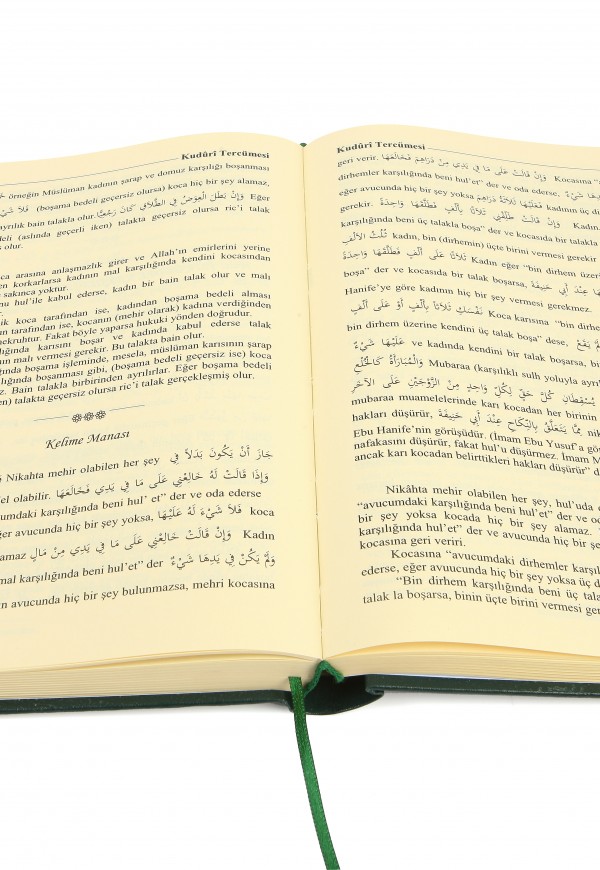 Kudûrî Tercümesi
örneğin Müslüman kadının şarap ve domuz karşılığı boşanması
(boşama bedeli geçersiz olursa) koca hiç bir şey alamaz,
ayrılık bain talakla olur. وَإِنْ بَطَلَ الْعِوَضُ فِي الطَّلَاقِ كَانَ رَجْعِيًّا Eğer
bedeli (aslında geçerli iken) talakta geçersiz olursa ric'i talak
olur.
arasına anlaşmazlık girer ve Allah'ın emirlerini yerine
korkarlarsa kadının mal karşılığında kendini kocasından
sakınca yoktur.
hul'ile kabul ederse, kadın bir bain talak olur ve malı
koca tarafından ise, kadından boşama bedeli alması
tarafından ise, kocanın (mehir olarak) kadına verdiğinden
mekruhtur. Fakat böyle yaparsa hukuki yönden doğrudur.
karısını boşar ve kadında kabul ederse talak
malı vermesi gerekir. Bu talakta bain olur.
boşama işleminde, mesela, müslüman karısının şarap
boşanması gibi, (boşama bedeli geçersiz ise) koca
Bain talakla birbirinden ayrılırlar. Eğer boşama bedeli
talakta geçersiz olursa ric'i talak gerçekleşmiş olur.
Kelime Manası
Nikahta mehir olabilen her şey جَازَ أَنْ يَكُونَ بَدَلًا فِي
olabilir. وَإِذَا قَالَتْ لَهُ خَالِعْنِي عَلَى مَا فِي يَدِي فَخَالَعَهَا
karşılığında beni hul' et" der ve oda ederse
avucunda hiç bir şey yoksa, فَلَا شَيْءَ لَهُ عَلَيْهَا koca
وَإِنْ قَالَتْ خَالِعْنِي عَلَى مَا فِي يَدِي مِنْ مَالٍ Kadın
mal karşılığında beni hul'et" der وَلَمْ يَكُنْ فِي يَدِهَا شَيْءٌ
avucunda hiç bir şey bulunmazsa, mehri kocasına
Kudûrî Tercümesi
geri verir. وَإِنْ قَالَتْ عَلَى مَا فِي يَدِي مِنْ دَرَاهِمَ فَخَالَعَهَا Kocasına
dirhemler karşılığında beni hul'et" der ve oda ederse,
eğer avucunda hiç bir şey yoksa فَعَلَيْهَا ثَلَاثَةُ دَرَاهِمَ kadının üç
gerekir. وَإِنْ قَالَتْ طَلِّقْنِي ثَلَاثًا بِأَلْفٍ فَطَلَّقَهَا وَاحِدَةً Kadın
karşılığında beni üç talakla boşa" der ve kocasıda bir talakla
ثُلُثُ الْأَلْفِ kadın, bin (dirhemin) üçte birini vermesi gerekir
ثَلَاثًا عَلَى أَلْفٍ فَطَلَّقَهَا وَاحِدَةً Kadın eğer "bin dirhem
boşa" der ve kocasıda bir talak boşarsa, عِنْدَ أَبِي حَنِيفَةَ
Hanife'ye göre kadının hiç bir şey vermesi gerekmez.
نَفْسَكِ ثَلَاثًا بِأَلْفٍ أَوْ عَلَى أَلْفٍ Koca karısına "bin
bin dirhem üzerine kendini üç talak boşa" dese,
عَلَيْهَا شَيْءٌ ve kadında kendini bir talak boşarsa,
وَالْمُبَارَأَةُ كَالْخُلْعِ Mubaraa (karşılıklı sulh yoluyla
يُسْقِطَانِ كُلَّ حَقٍّ لِكُلِّ وَاحِدٍ مِنَ الزَّوْجَيْنِ عَلَى الْآخَرِ
mubaraa muamelelerinde karı kocadan her birinin
hakları düşürür, مِمَّا يَتَعَلَّقُ بِالنِّكَاحِ عِنْدَ أَبِي حَنِيفَةَ
Ebu Hanife'nin görüşüdür. (İmam Ebu Yusuf'a
nafakasını düşürür, fakat hul'u düşürmez. İmam
ancak karı kocadan belirttikleri hakları düşürür"
Nikâhta mehir olabilen her şey, hul'uda
"avucumdaki karşılığında hul'et" der ve
bir şey yoksa kocada hiç bir şey alamaz.
karşılığında hul'et" der ve avucunda hiç bir
kocasına geri verir.
Kocasına "avucumdaki dirhemler
ederse, eğer avuucunda hiç bir şey yoksa üç
"Bin dirhem karşılığında beni üç
talak la boşarsa, binin üçte birini vermesi